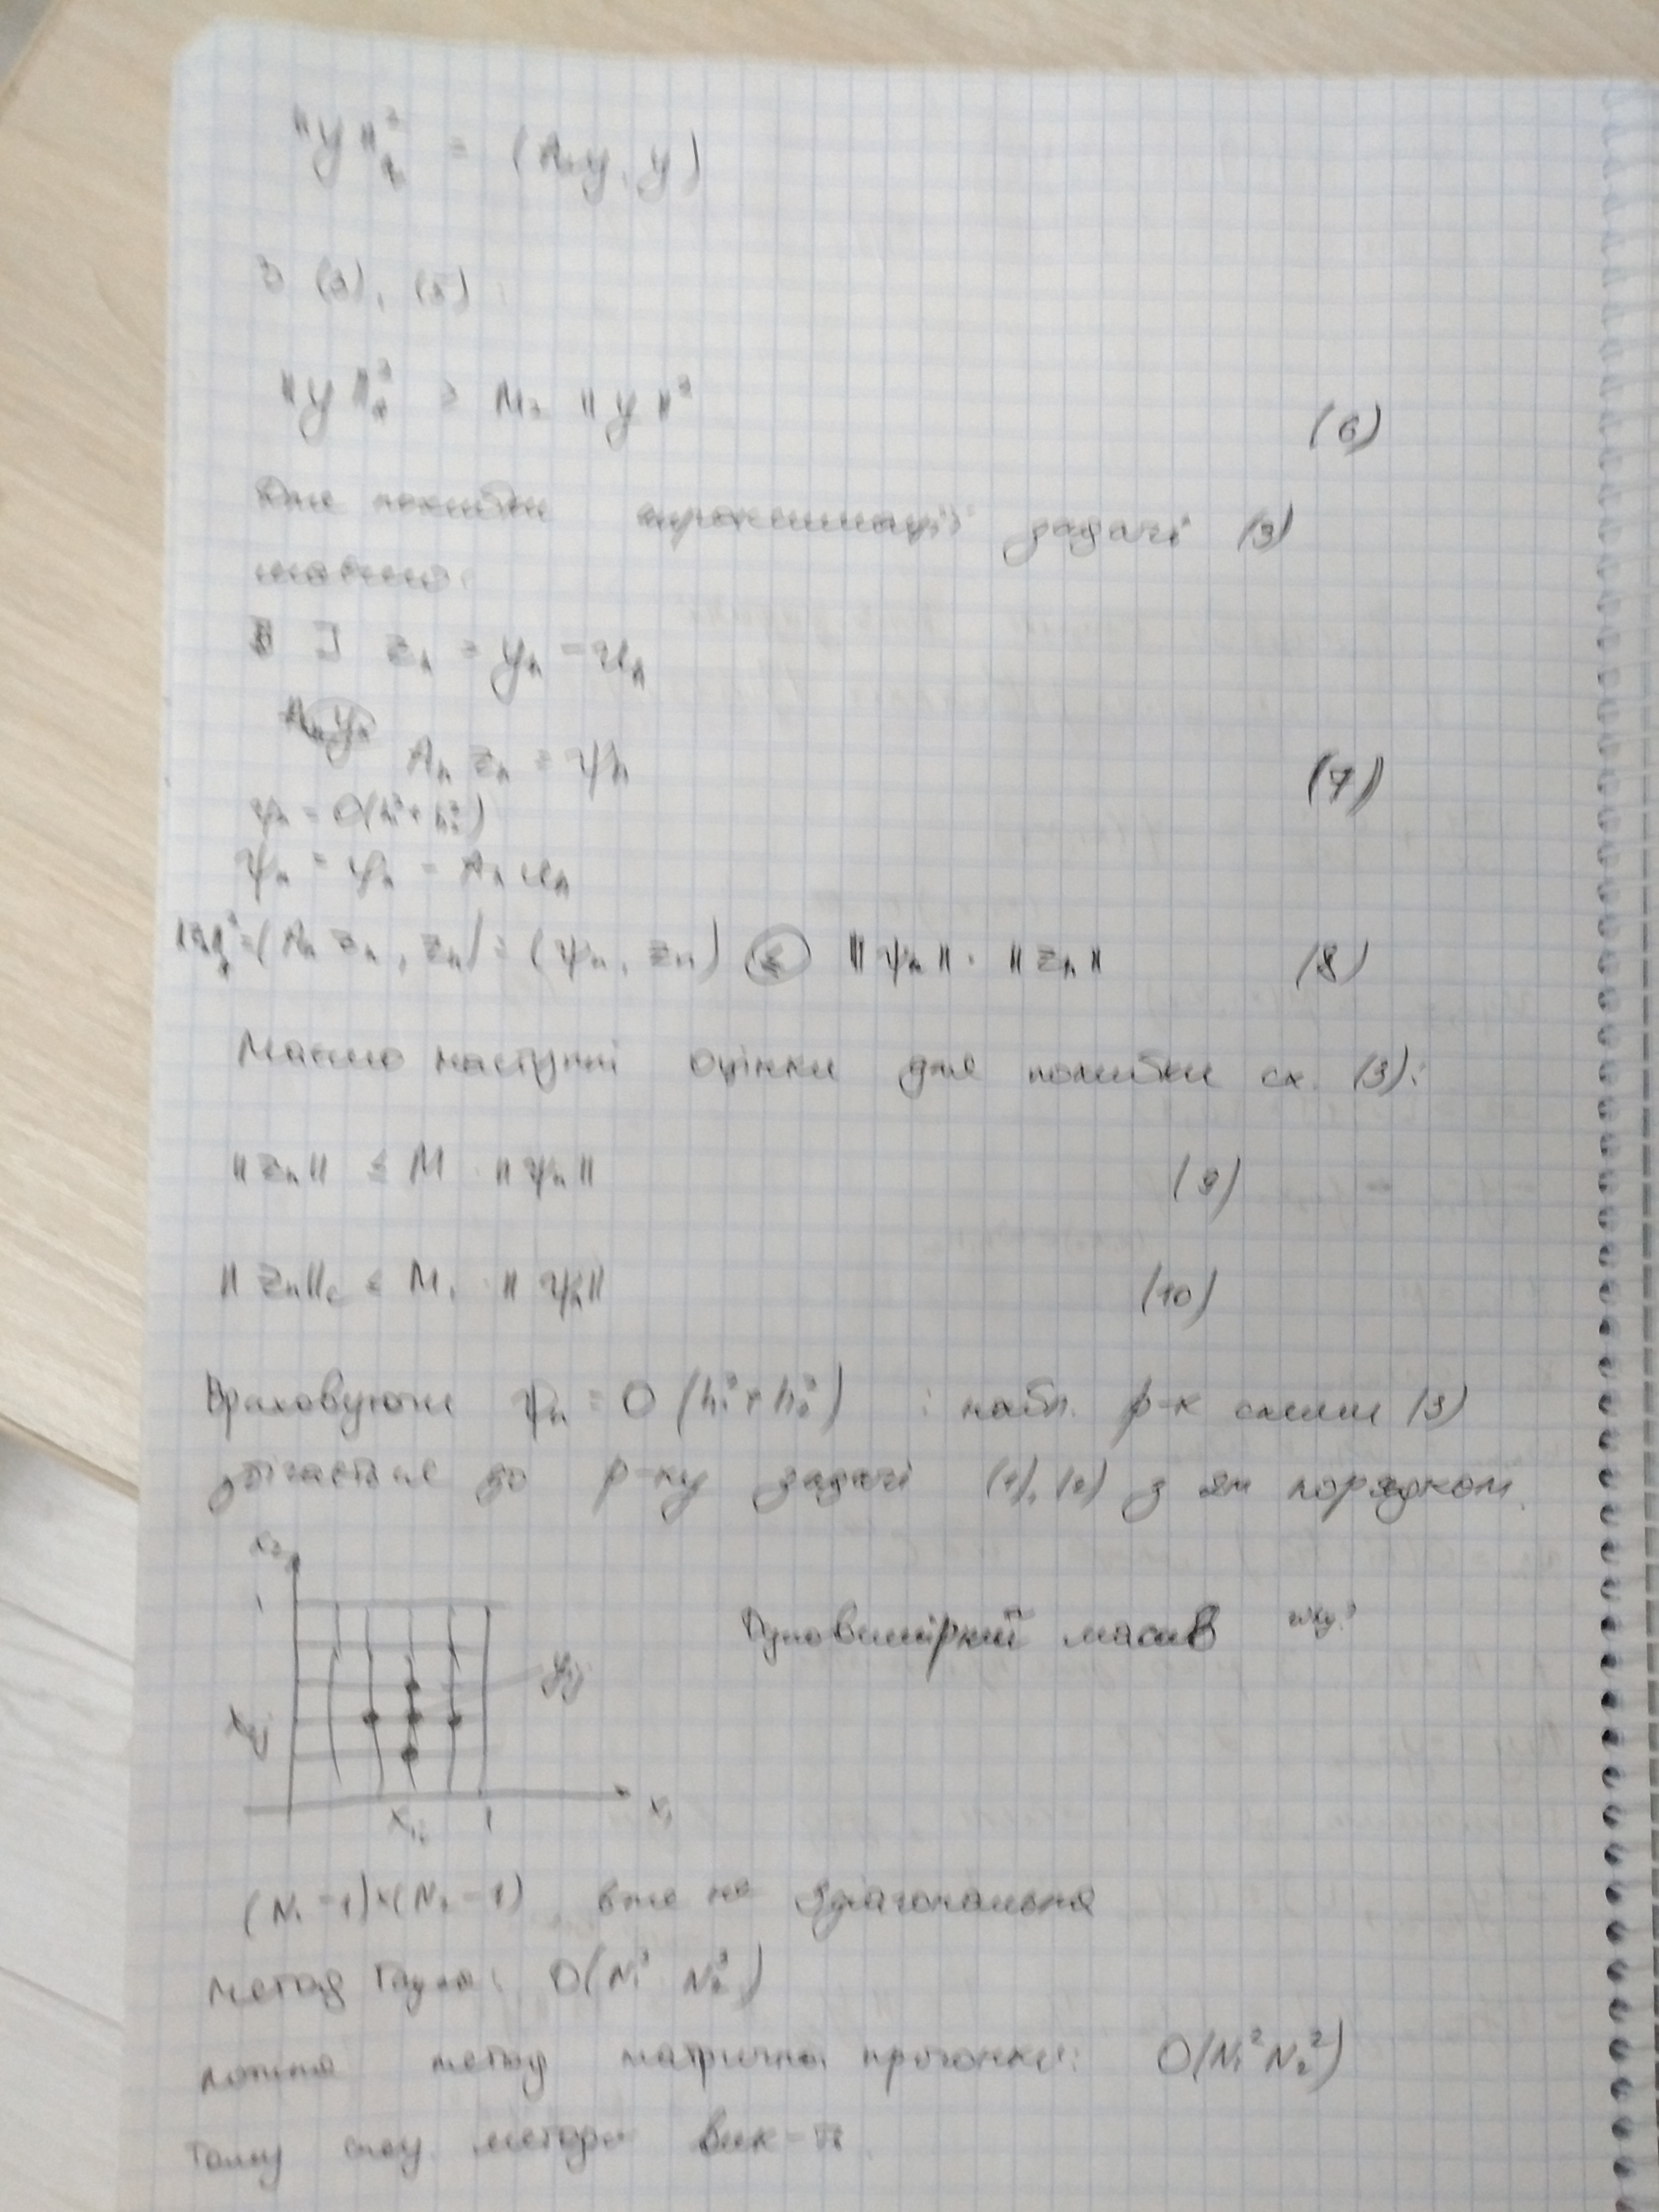 ‖y‖²_A = (A_h y, y)
З (3), (5):
‖y‖²_A ≥ M₂ ‖y‖² (6)
Для похибки апроксимації задачі (3)
маємо:
] z_h = y_h - u_h
A_h y_h
A_h z_h = ψ_h (7)
ψ_h = O(h₁² + h₂²)
ψ_h = φ_h - A_h u_h
‖z_h‖²_A = (A_h z_h, z_h) = (ψ_h, z_h) ≤ ‖ψ_h‖ · ‖z_h‖ (8)
Маємо наступні оцінки для похибки сх. (3):
‖z_h‖ ≤ M · ‖ψ_h‖ (9)
‖z_h‖_C ≤ M₁ · ‖ψ_h‖ (10)
Враховуючи ψ_h = O(h₁² + h₂²) : набл. р-к схеми (3)
збігається до р-ку задачі (1), (2) з 2м порядком.
x₂
1
y_ij
Двовимірний масив
x_2j
x_1i 1 x₁
(N₁-1)×(N₂-1), вже не 3діагональна
Метод Гауса: O(N₁³ N₂³)
можна метод матричної прогонки: O(N₁² N₂²)
Тому методи вик-ть